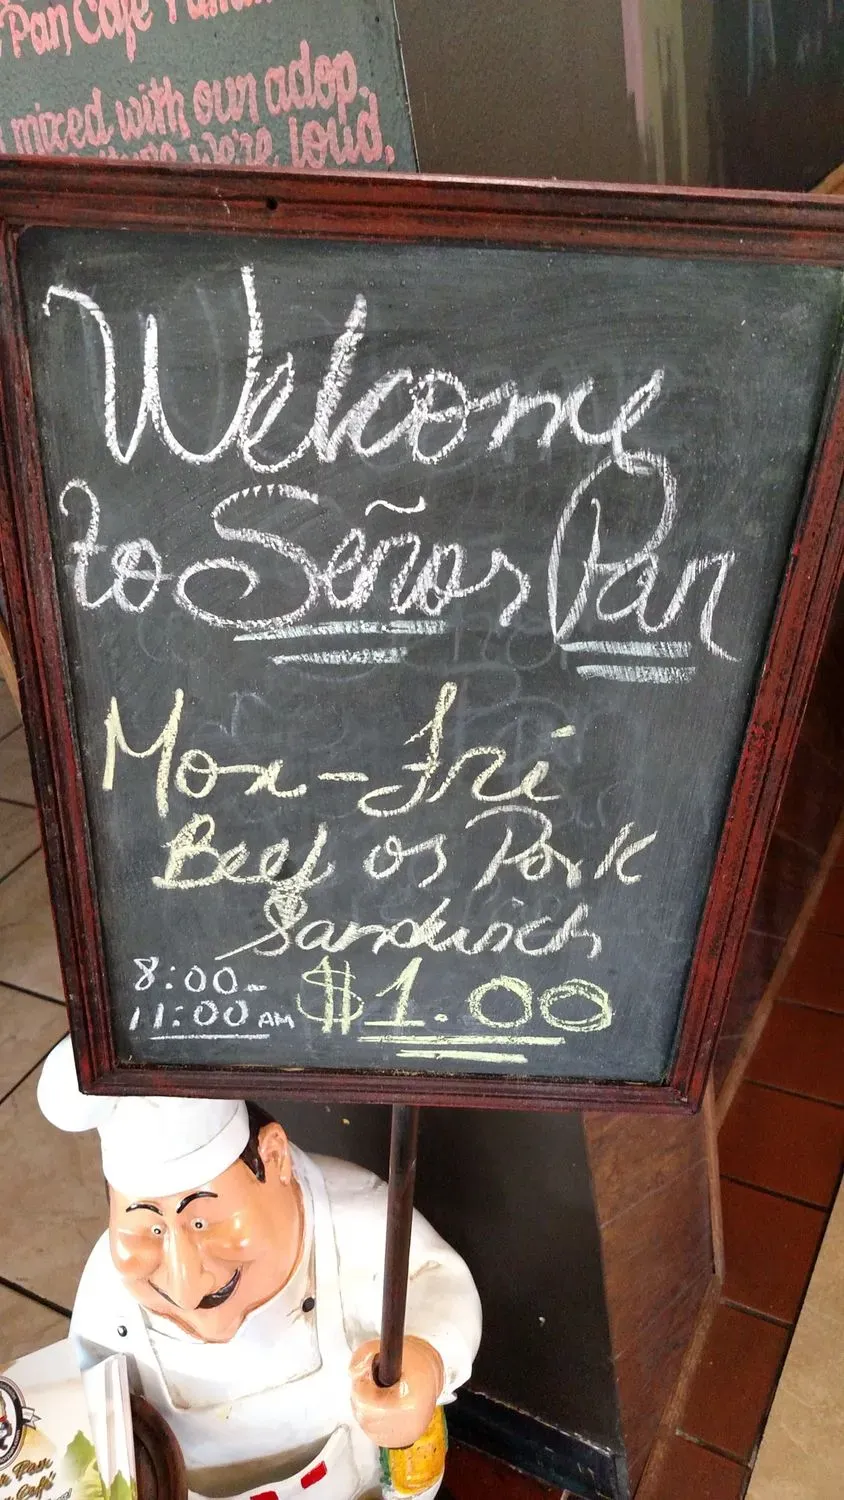 Pan Café
mixed with our adop.
we're loud,
Welcome
to Señor Pan
Mon-Fri
Beef or Pork
Sandwich
8:00-
11:00 AM $1.00
Pan
Café